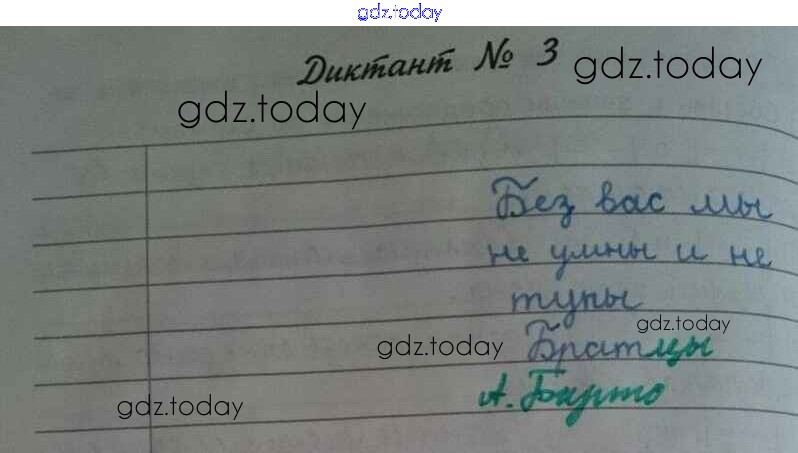 gdz.today
Диктант № 3
gdz.today
gdz.today
Без вас мы
не умны и не
тупы
gdz.today
gdz.today
Братцы
А. Барто
gdz.today